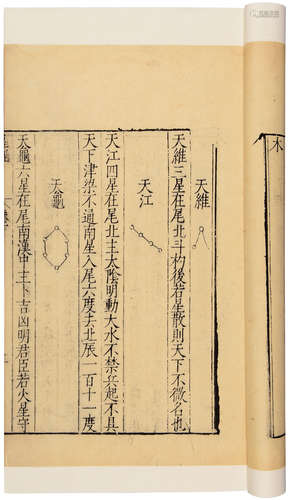 天維
天維三星在尾北斗杓後若星散則天下不微名也
天江
天江四星在尾北主太陰明動大水不禁兵起不具
天下津梁不通南星入尾六度去北辰一百十一度
天龜
天龜六星在尾南漢中主卜吉凶明君臣若火星守